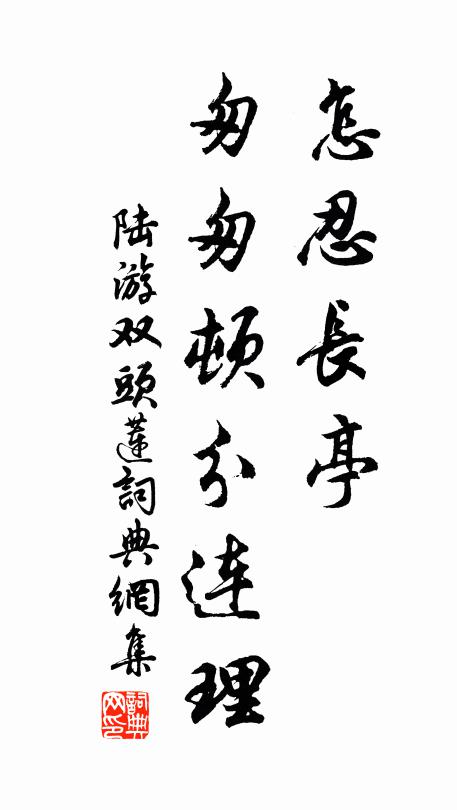 怎忍長亭
匆匆頓分連理
陆游双頭蓮詞典網集
詞典网印